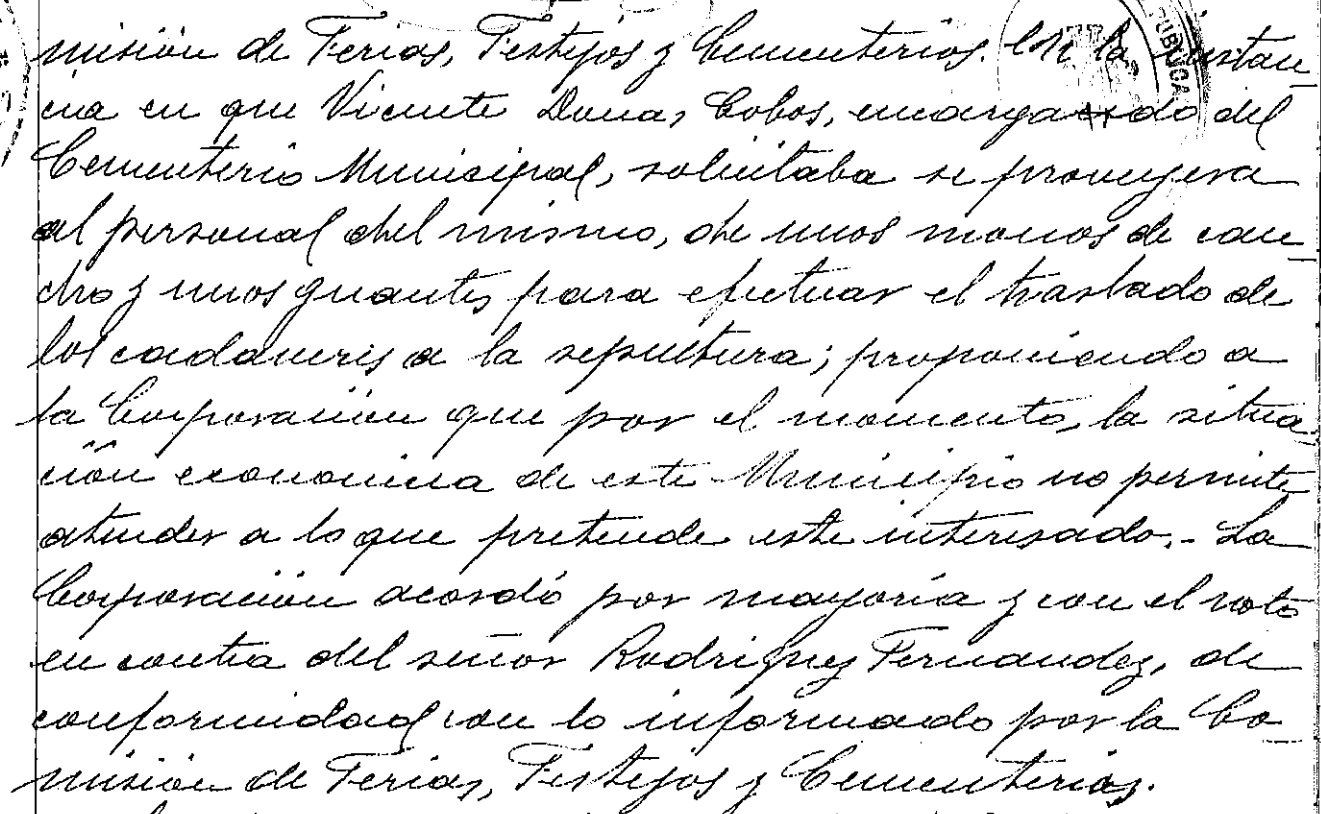 misión de Ferias, Festejos y Cementerios. En la instan
cia en que Vicente Cobos, encargado del
Cementerio Municipal, solicitaba se proveyera
al personal del mismo, de unos monos de cau
cho y unos guantes para efectuar el traslado de
los cadaveris a la sepultura; proponiendo a
la Corporación que por el momento, la situa
ción economica de este Municipio no permite
atender a lo que pretende este interesado.- La
Corporación acordó por mayoría y con el voto
en contra del señor Rodriguez Fernandez, de
conformidad con lo informado por la Co
misión de Ferias, Festejos y Cementerios.